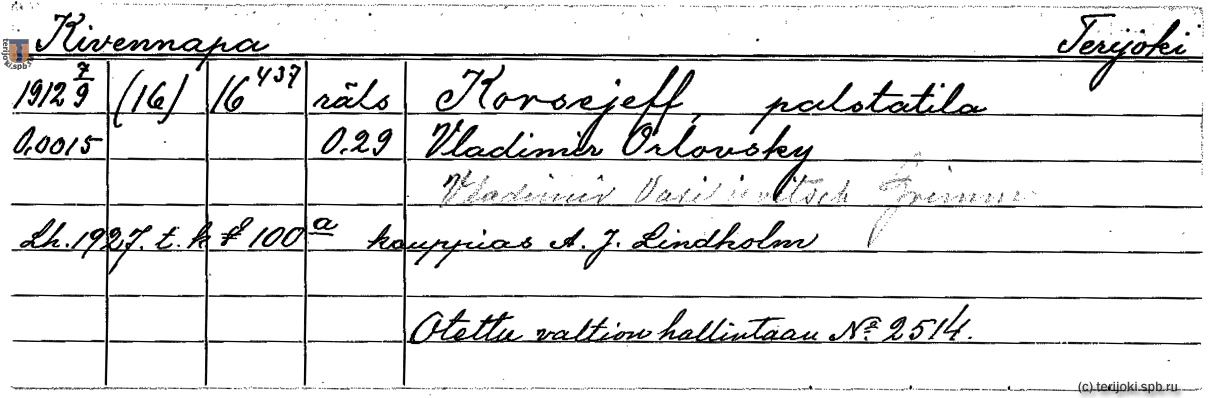 Kivennapa Terijoki
1912 7/9 (16) 16 437 räls Korsejeff, palstatila
0,0015 0.29 Vladimir Orlovsky
Vladimir Grimm
Lh. 1927. t. k § 100 a kauppias A. J. Lindholm
Otettu valtion hallintaan No 2514.
terijoki.spb.ru
(c) terijoki.spb.ru